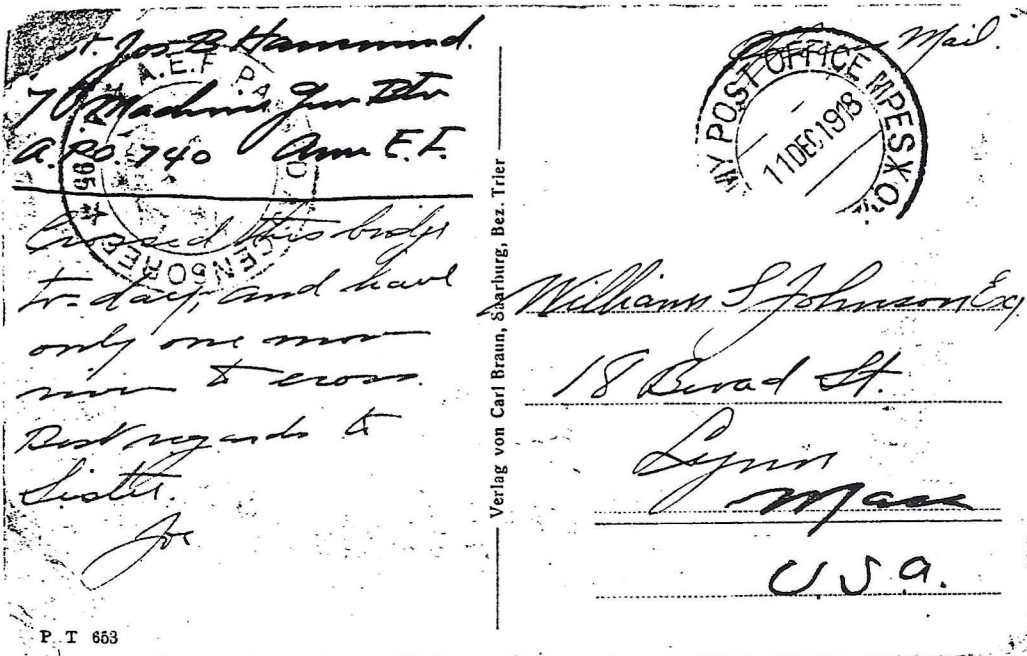 Jos B Hammond.
Machine Gun Btn
A.P.O. 740 Am E.F.
A.E.F. PA
CENSORED
Crossed this bridge
to-day, and have
only one more
river to cross.
Best regards to
Sister.
Joe
P. T 653
Verlag von Carl Braun, Saarburg, Bez. Trier
Mail.
POST OFFICE MPESX
11 DEC 1918
William S Johnson Esq
18 Broad St.
Lynn
Mass
U.S.A.